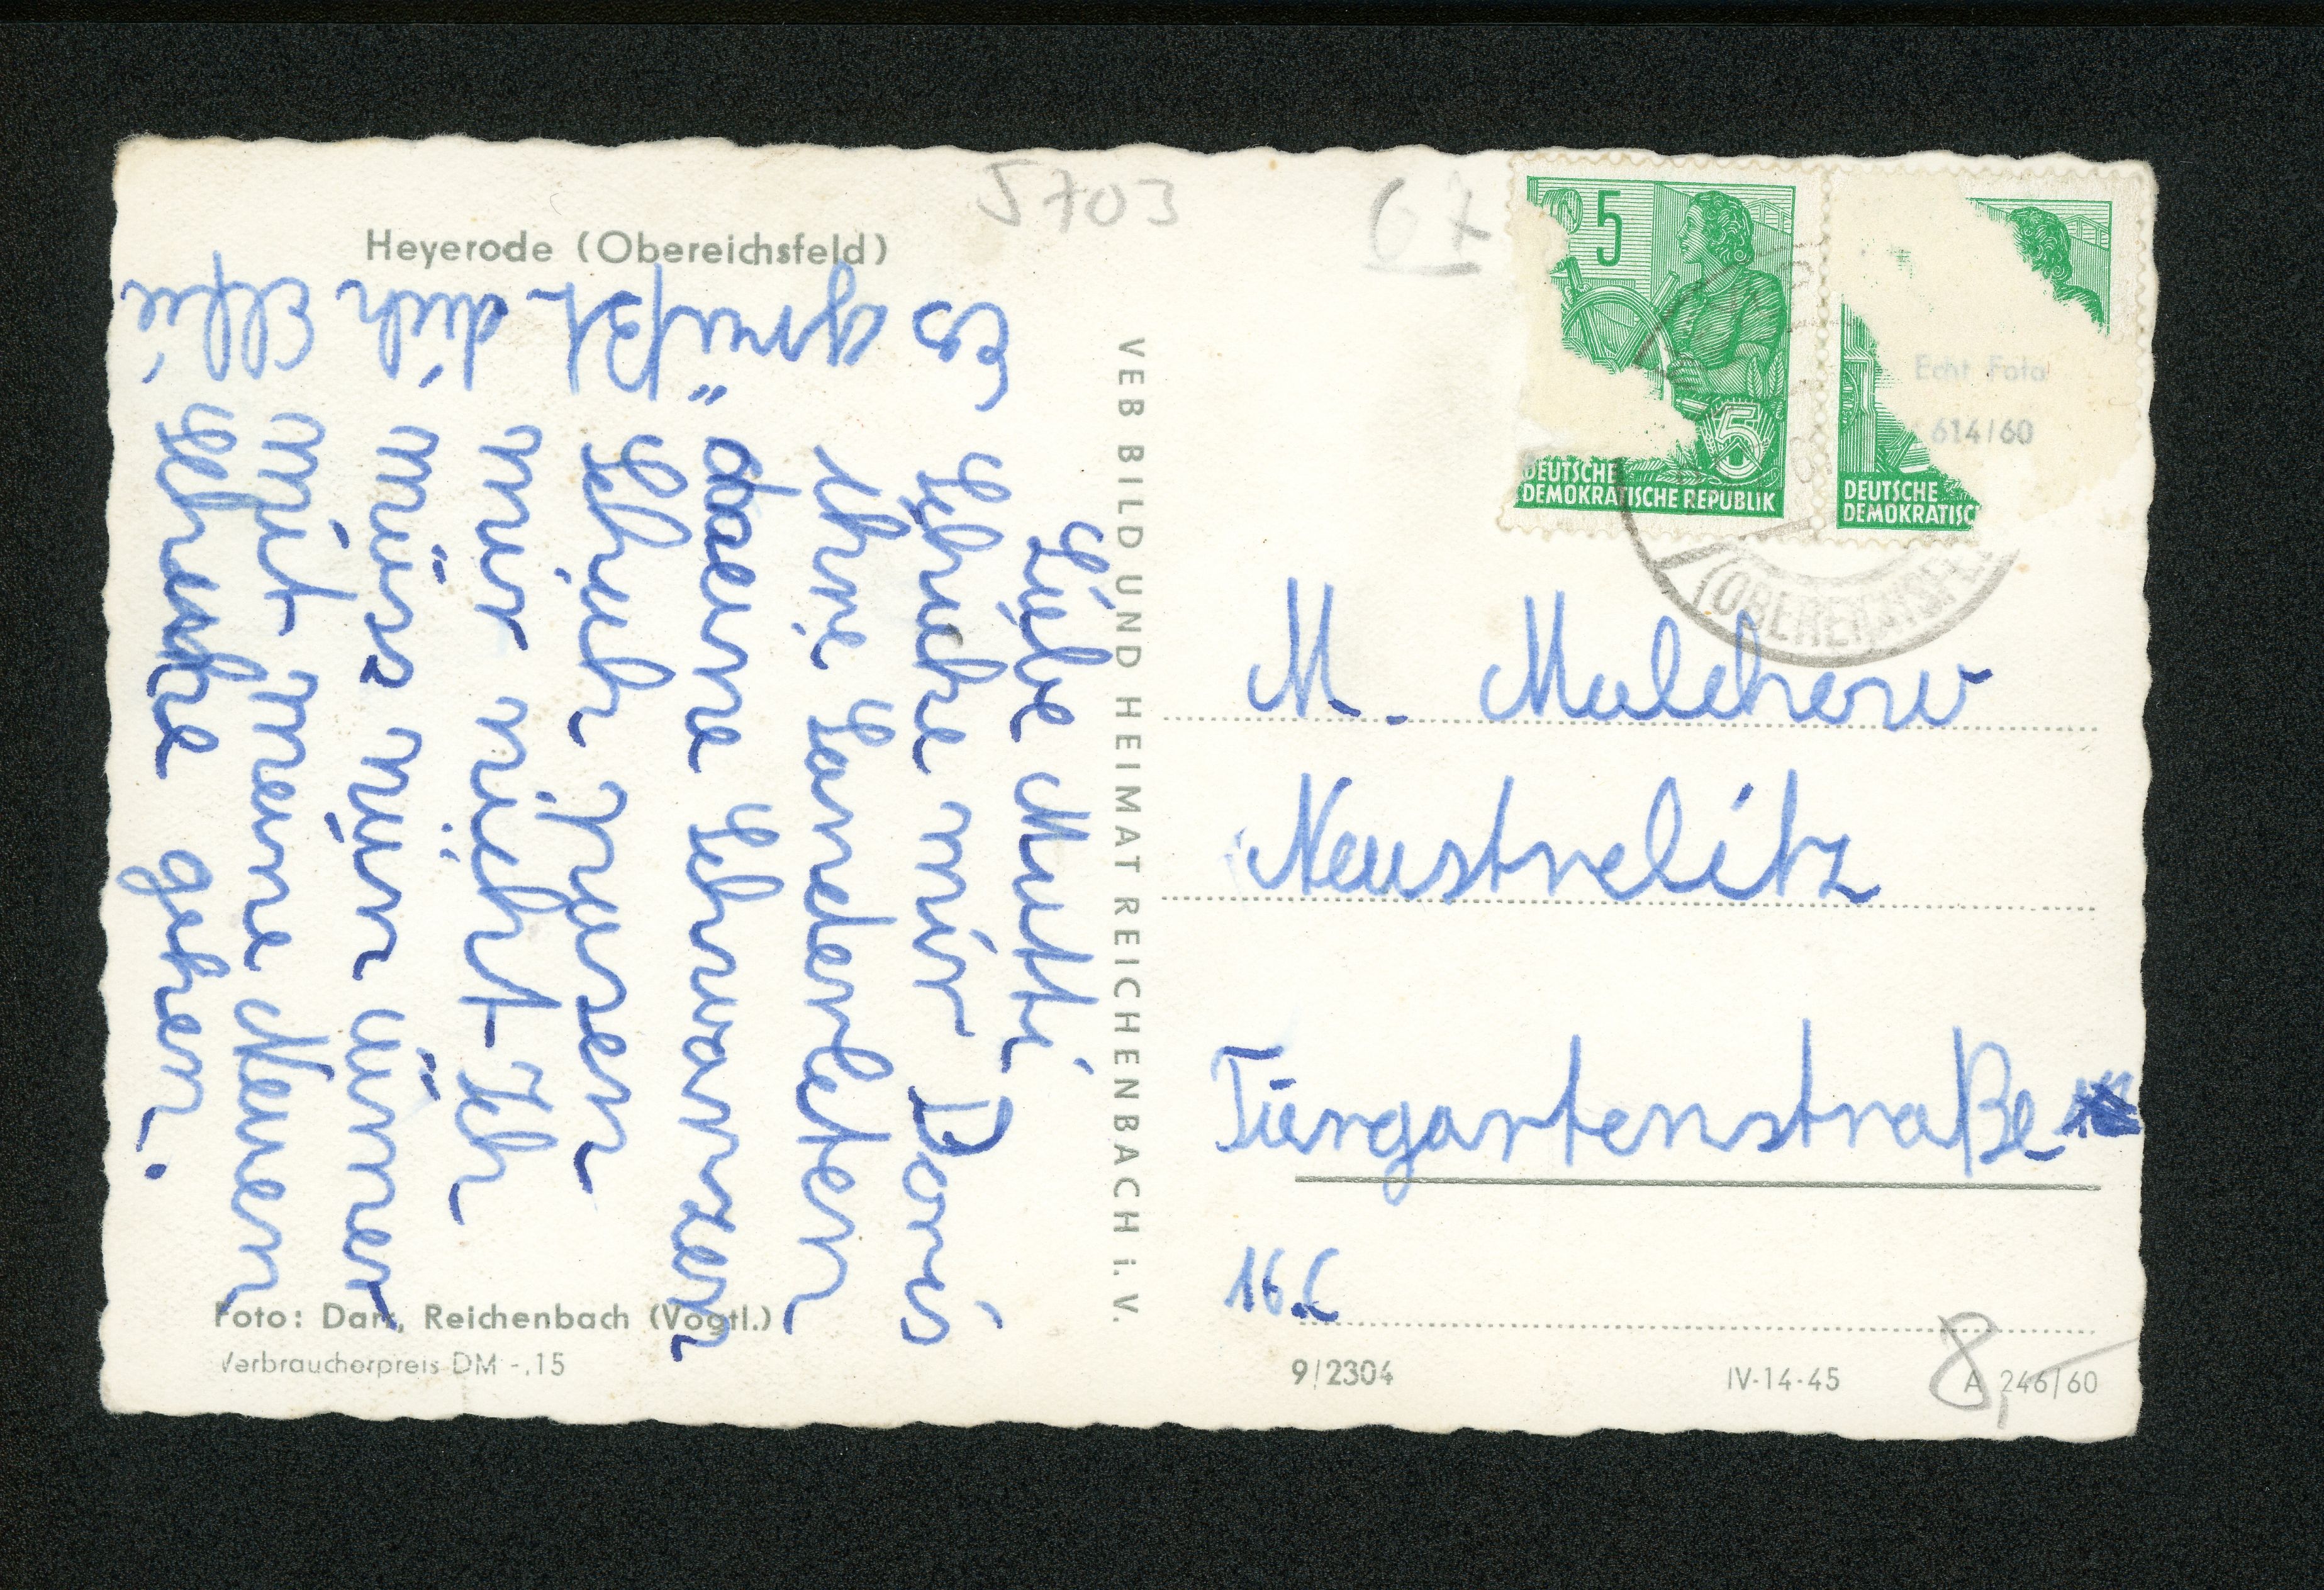 Heyerode (Obereichsfeld)
Liebe Mutti
Schicke mir Doris
ihre Sandaletten
deine Schwarzen
Schuh pasen
mir nicht. Ich
müss nun immer
mit meine Neuen
gehen.
Es grüßt dich Elfie
Foto: Darr, Reichenbach (Vogtl.)
Verbraucherpreis DM -.15
VEB BILD UND HEIMAT REICHENBACH i. V.
5703
5
5
DEUTSCHE
DEMOKRATISCHE REPUBLIK
DEUTSCHE
DEMOKRATISC
Echt Foto
614/60
(OBEREICHSFE
M. Malchow
Neustrelitz
Tiergartenstraße
16.C
9/2304
IV-14-45
A 246/60
8,-